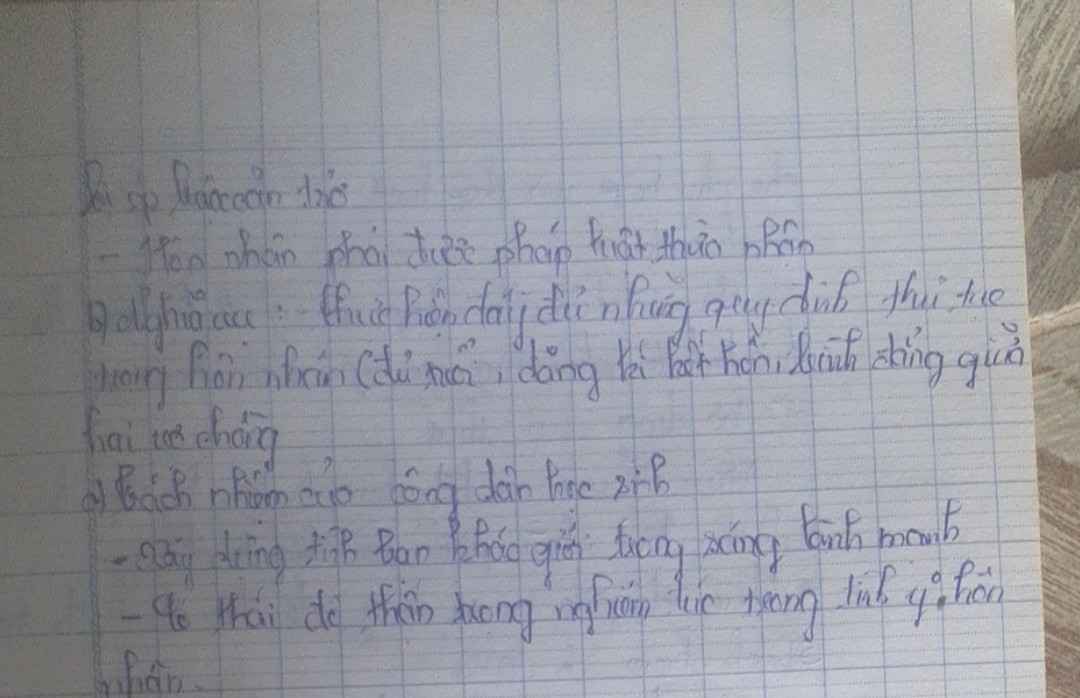 - Hôn nhân phải được pháp luật thừa nhận
nghĩa : thực hiện đầy đủ những quy định thủ tục
trong hôn nhân (đủ tuổi, đăng kí kết hôn, bình đẳng giữa
hai vợ chồng
trách nhiệm của công dân học sinh
- Xây dựng tình bạn khác giới trong sáng lành mạnh
- Có thái độ thận trọng nghiêm túc trong tình yêu hôn
nhân